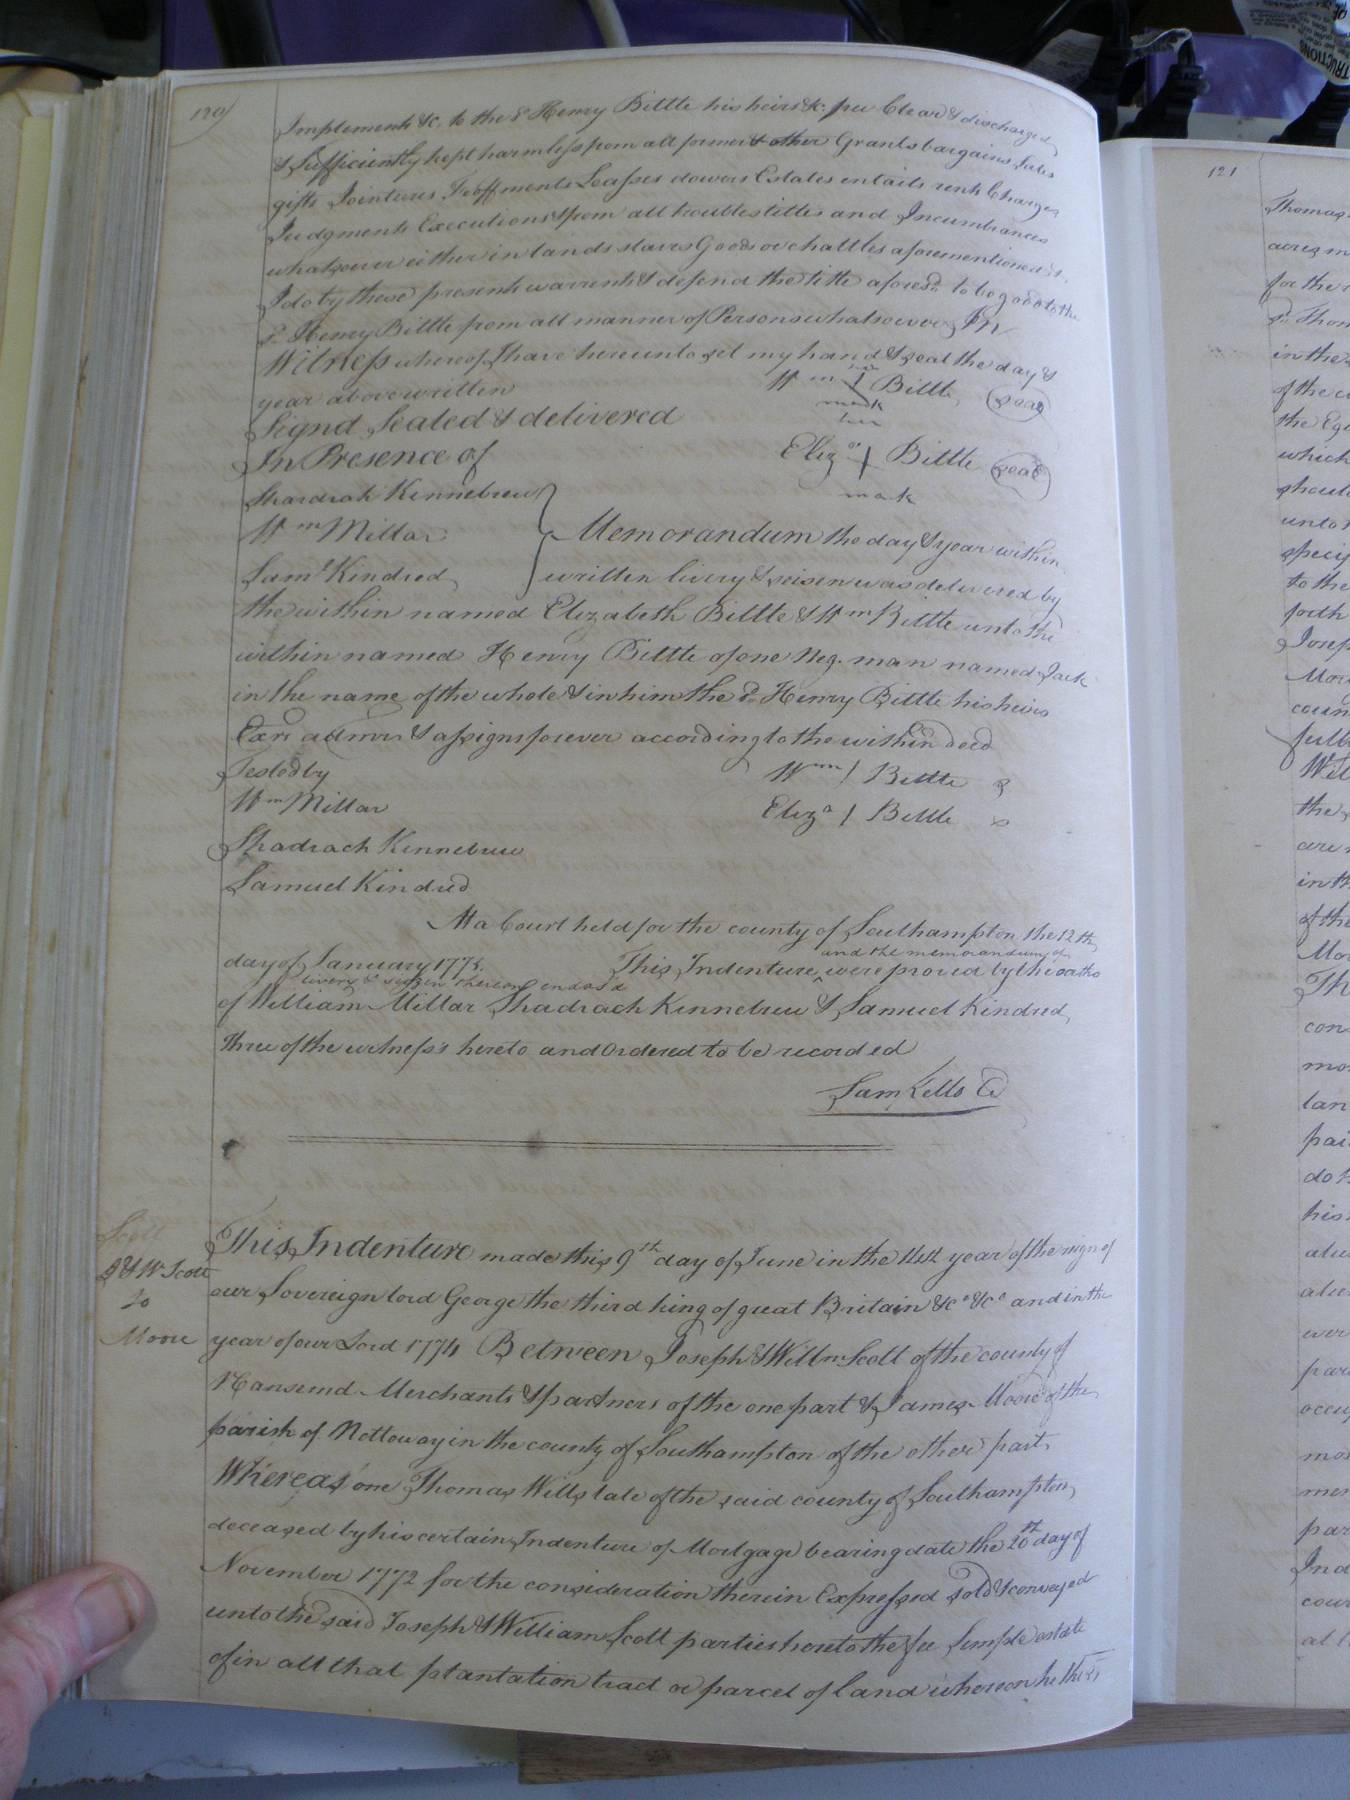 120
Implements &c. to the sd Henry Bittle his heirs &c. free Clear & discharged
& Sufficiently kept harmless from all former & other Grants bargains Sales
gifts Jointures Feoffments Leases dowers Estates entails rents Charges
Judgments Executions & from all troubles titles and Incumbrances
whatsoever either in lands slaves Goods or chattles aforementioned &
I do by these presents warrent & defend the title aforesd. to be good to the
sd. Henry Bittle from all manner of Persons whatsoever In
Witness whereof I have hereunto set my hand & seal the day &
year above written
his
Wm I Bittle seal
mark
Signd Sealed & delivered
her
In Presence of
Eliza + Bittle seal
mark
Shardrak Kinnebrew
Wm Millar
Memorandum the day & year within
Saml Kindred
written livery & seisen was delivered by
the within named Elizabeth Bittle & Wm Bittle unto the
within named Henry Bittle of one Neg. man named Jack
in the name of the whole & in him the sd. Henry Bittle his heirs
Exrs admrs & assigns forever according to the within deed
Tested by
Wm / Bittle
Wm Millar
Eliza / Bittle
Shadrach Kennebrew
Samuel Kindred
At a Court held for the county of Southampton the 12th
day of January 1775.
This Indenture and the memorandum of
livery & seizen thereon endorsd
were proved by the oaths
of William Millar Shadrach Kennebrew & Samuel Kindred
three of the witness's hereto and Ordered to be recorded
Sam Kello
Scott
J & W Scott
to
Moore
This Indenture made this 9th day of June in the 14th year of the reign of
our Sovereign lord George the third king of great Britain &c &c and in the
year of our Lord 1774 Between Joseph & Willm Scott of the county of
Nansemd Merchants & partners of the one part & James Moore of the
parish of Nottoway in the county of Southampton of the other part
Whereas one Thomas Wills late of the said county of Southampton
deceased by his certain Indenture of Mortgage bearing date the 20th day of
November 1772 for the consideration therein Expressed sold & conveyed
unto the said Joseph & William Scott parties hereto the fee Simple estate
of in all that plantation tract or parcel of land whereon he the
121
Thomas
acres
for the
sd. Thom
in the
of the
the
which
unto
to the
forth
Josep
Moo
coun
Wit
the
are
in th
of the
Moo
Th
con
mo
lan
pai
do
his
par
Ind
cour